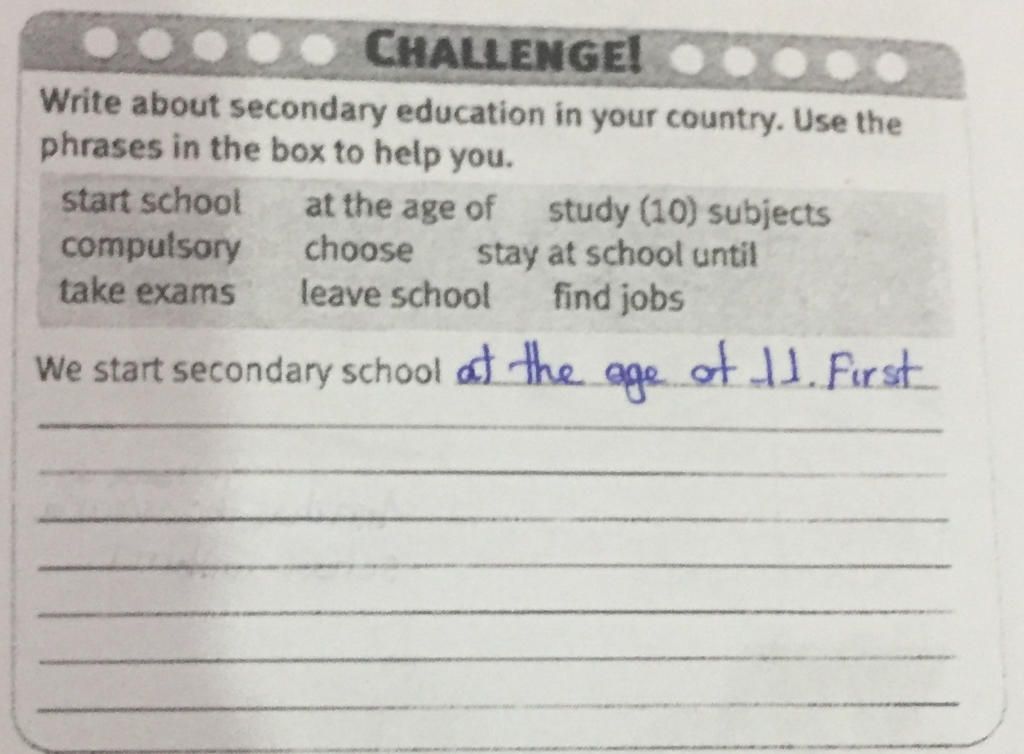 CHALLENGE!
Write about secondary education in your country. Use the
phrases in the box to help you.
start school at the age of study (10) subjects
compulsory choose stay at school until
take exams leave school find jobs
We start secondary school at the age of 11. First